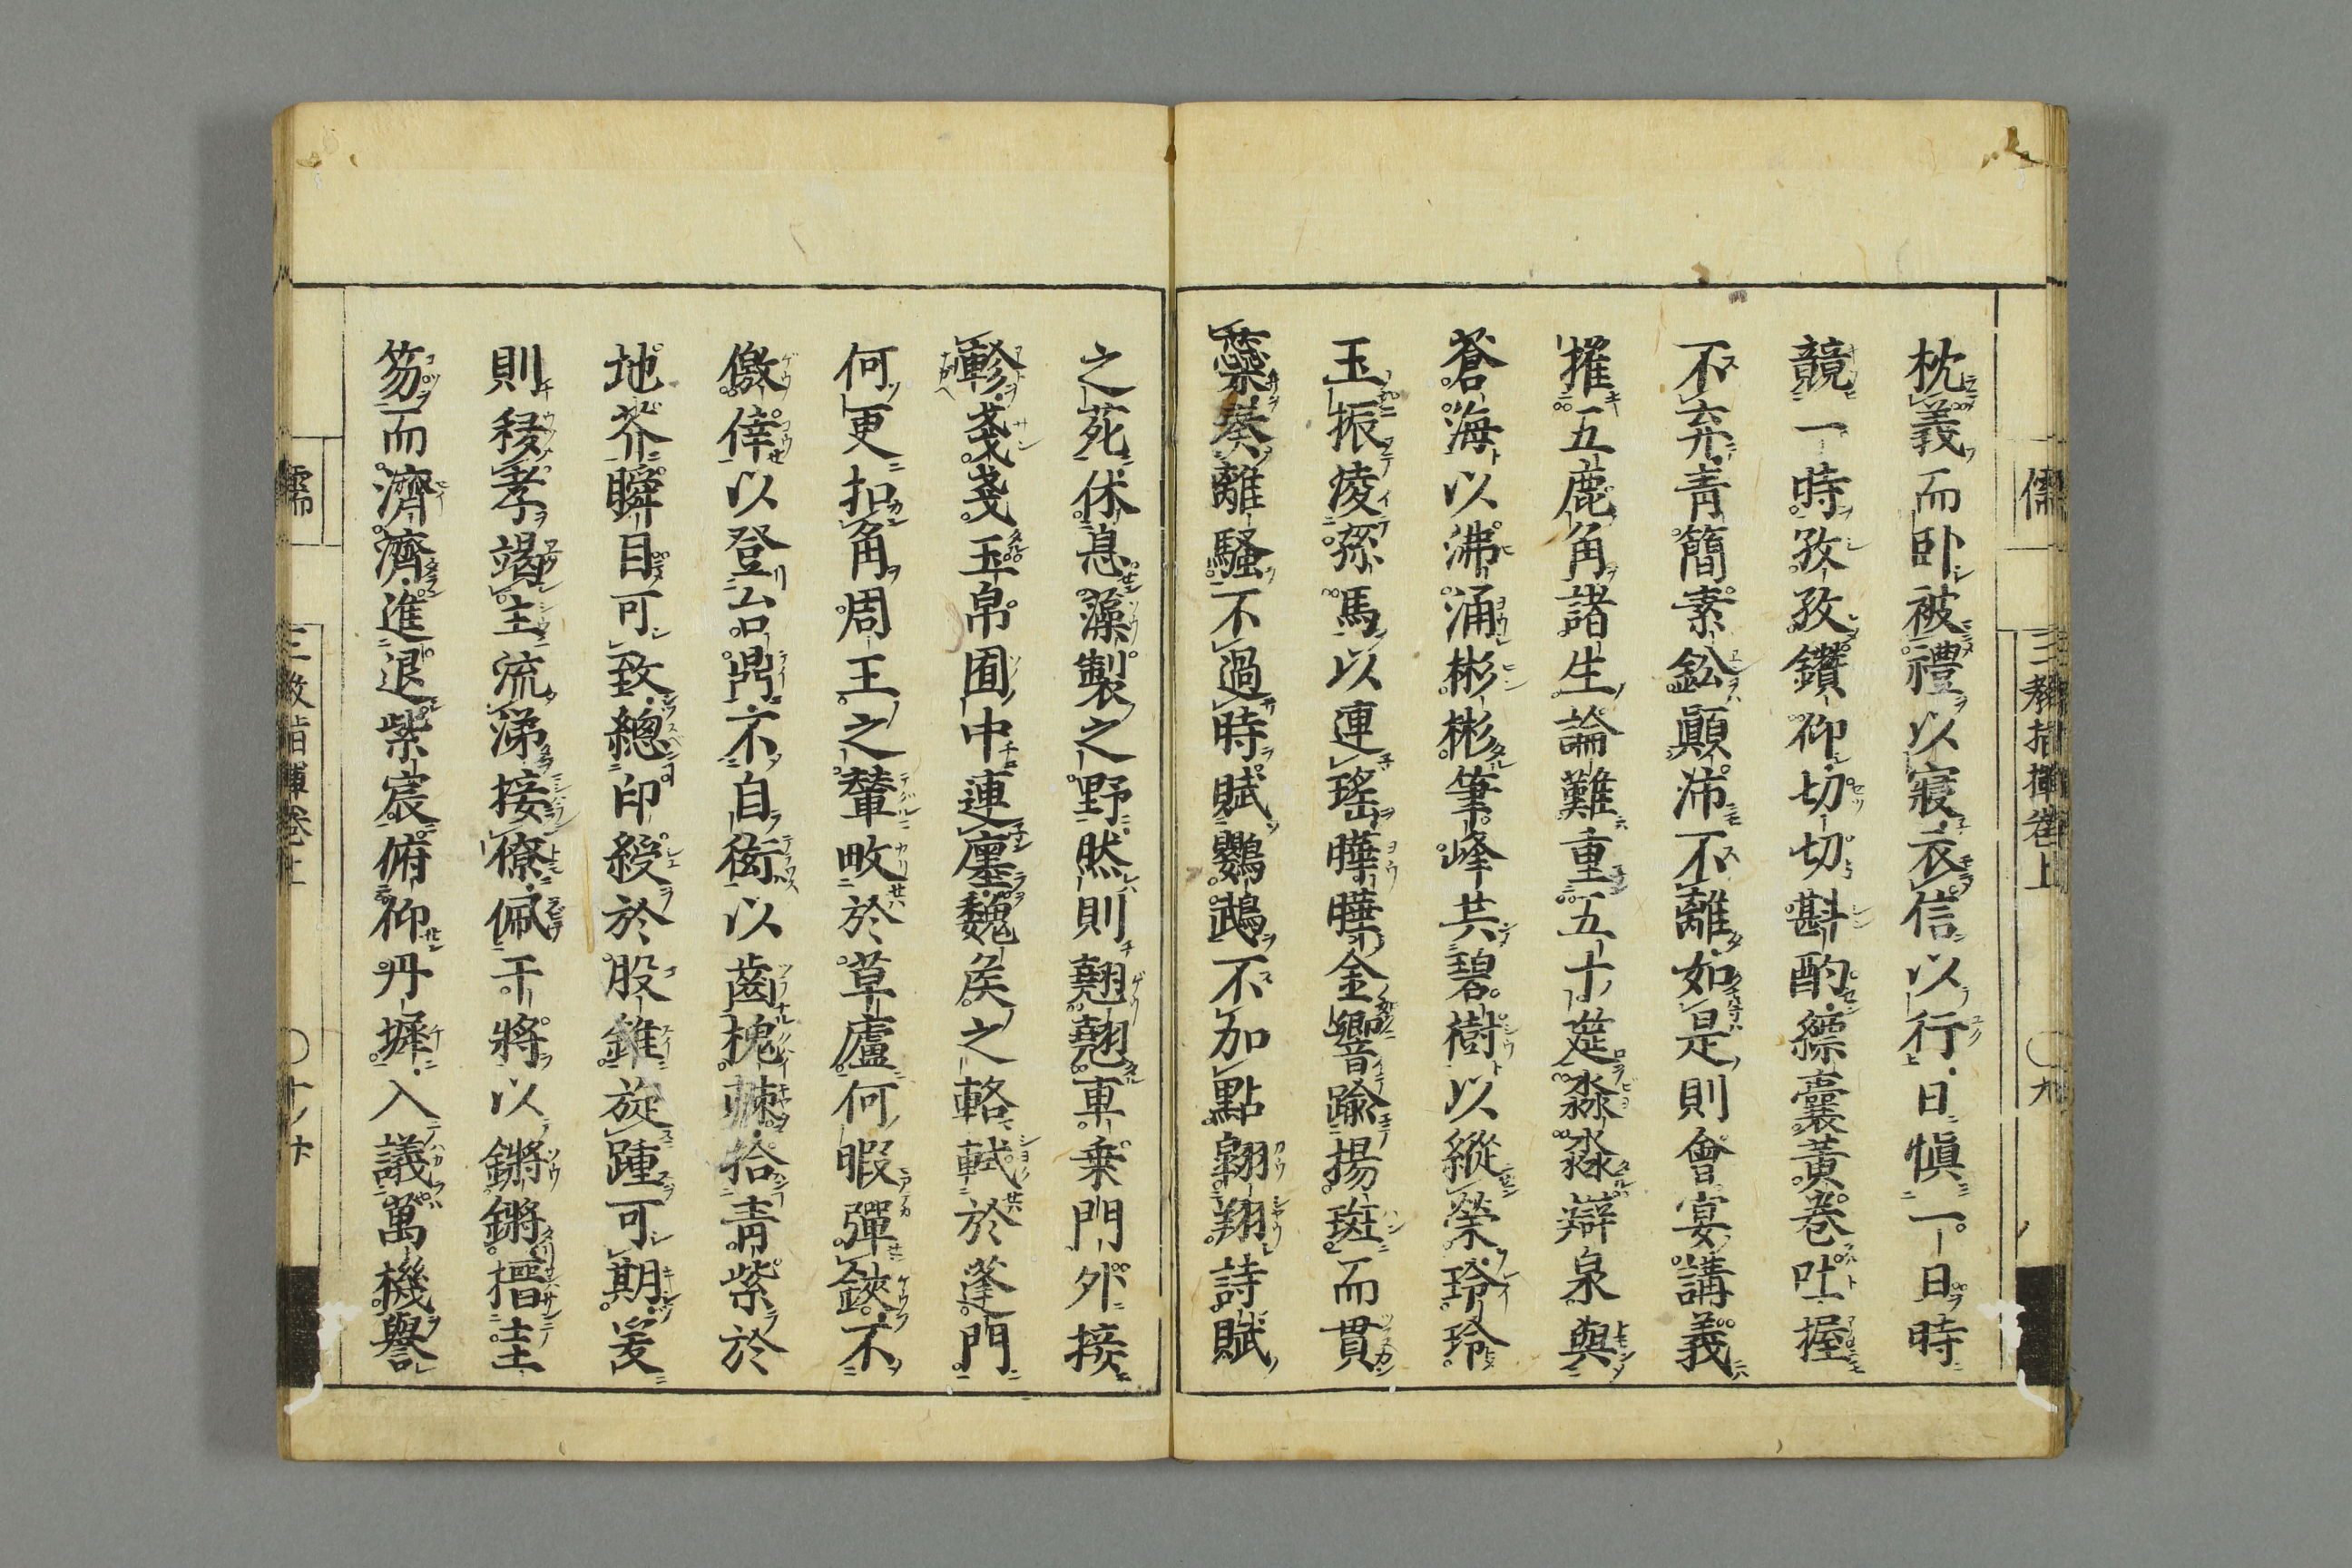 儒 三教指揮卷上 〇九
枕義而卧被禮以寢衣信以行日愼一日時
競一時孜孜鑽仰切切斟酌縹囊黃卷吐握
不弃青簡素鈆顚沛不離如是則會宴講義
摧五鹿角諸生論難重五十筵淼淼辯泉與
蒼海以沸涌彬彬筆峰共碧樹以縱榮玲玲
玉振凌孫馬以連瑤曄曄金響踰揚斑而貫
蘂葵離騷不過時賦鸚鵡不加點翱翔詩賦
之苑休息藻製之野然則翹翹車乘門外接
軫戔戔玉帛囿中連廛魏矦之輅軾於蓬門
何更扣角周王之輦畋於草廬何暇彈鋏不
儌倖以登台鼎不自衒以齒槐棘拾青紫於
地芥瞬目可致總印綬於股錐旋踵可期爰
則移孝竭主流涕接僚佩干將以鏘鏘搢圭
笏而濟濟進退紫宸俯仰丹墀入議萬機譽
儒 三教指揮卷上 〇十ノ